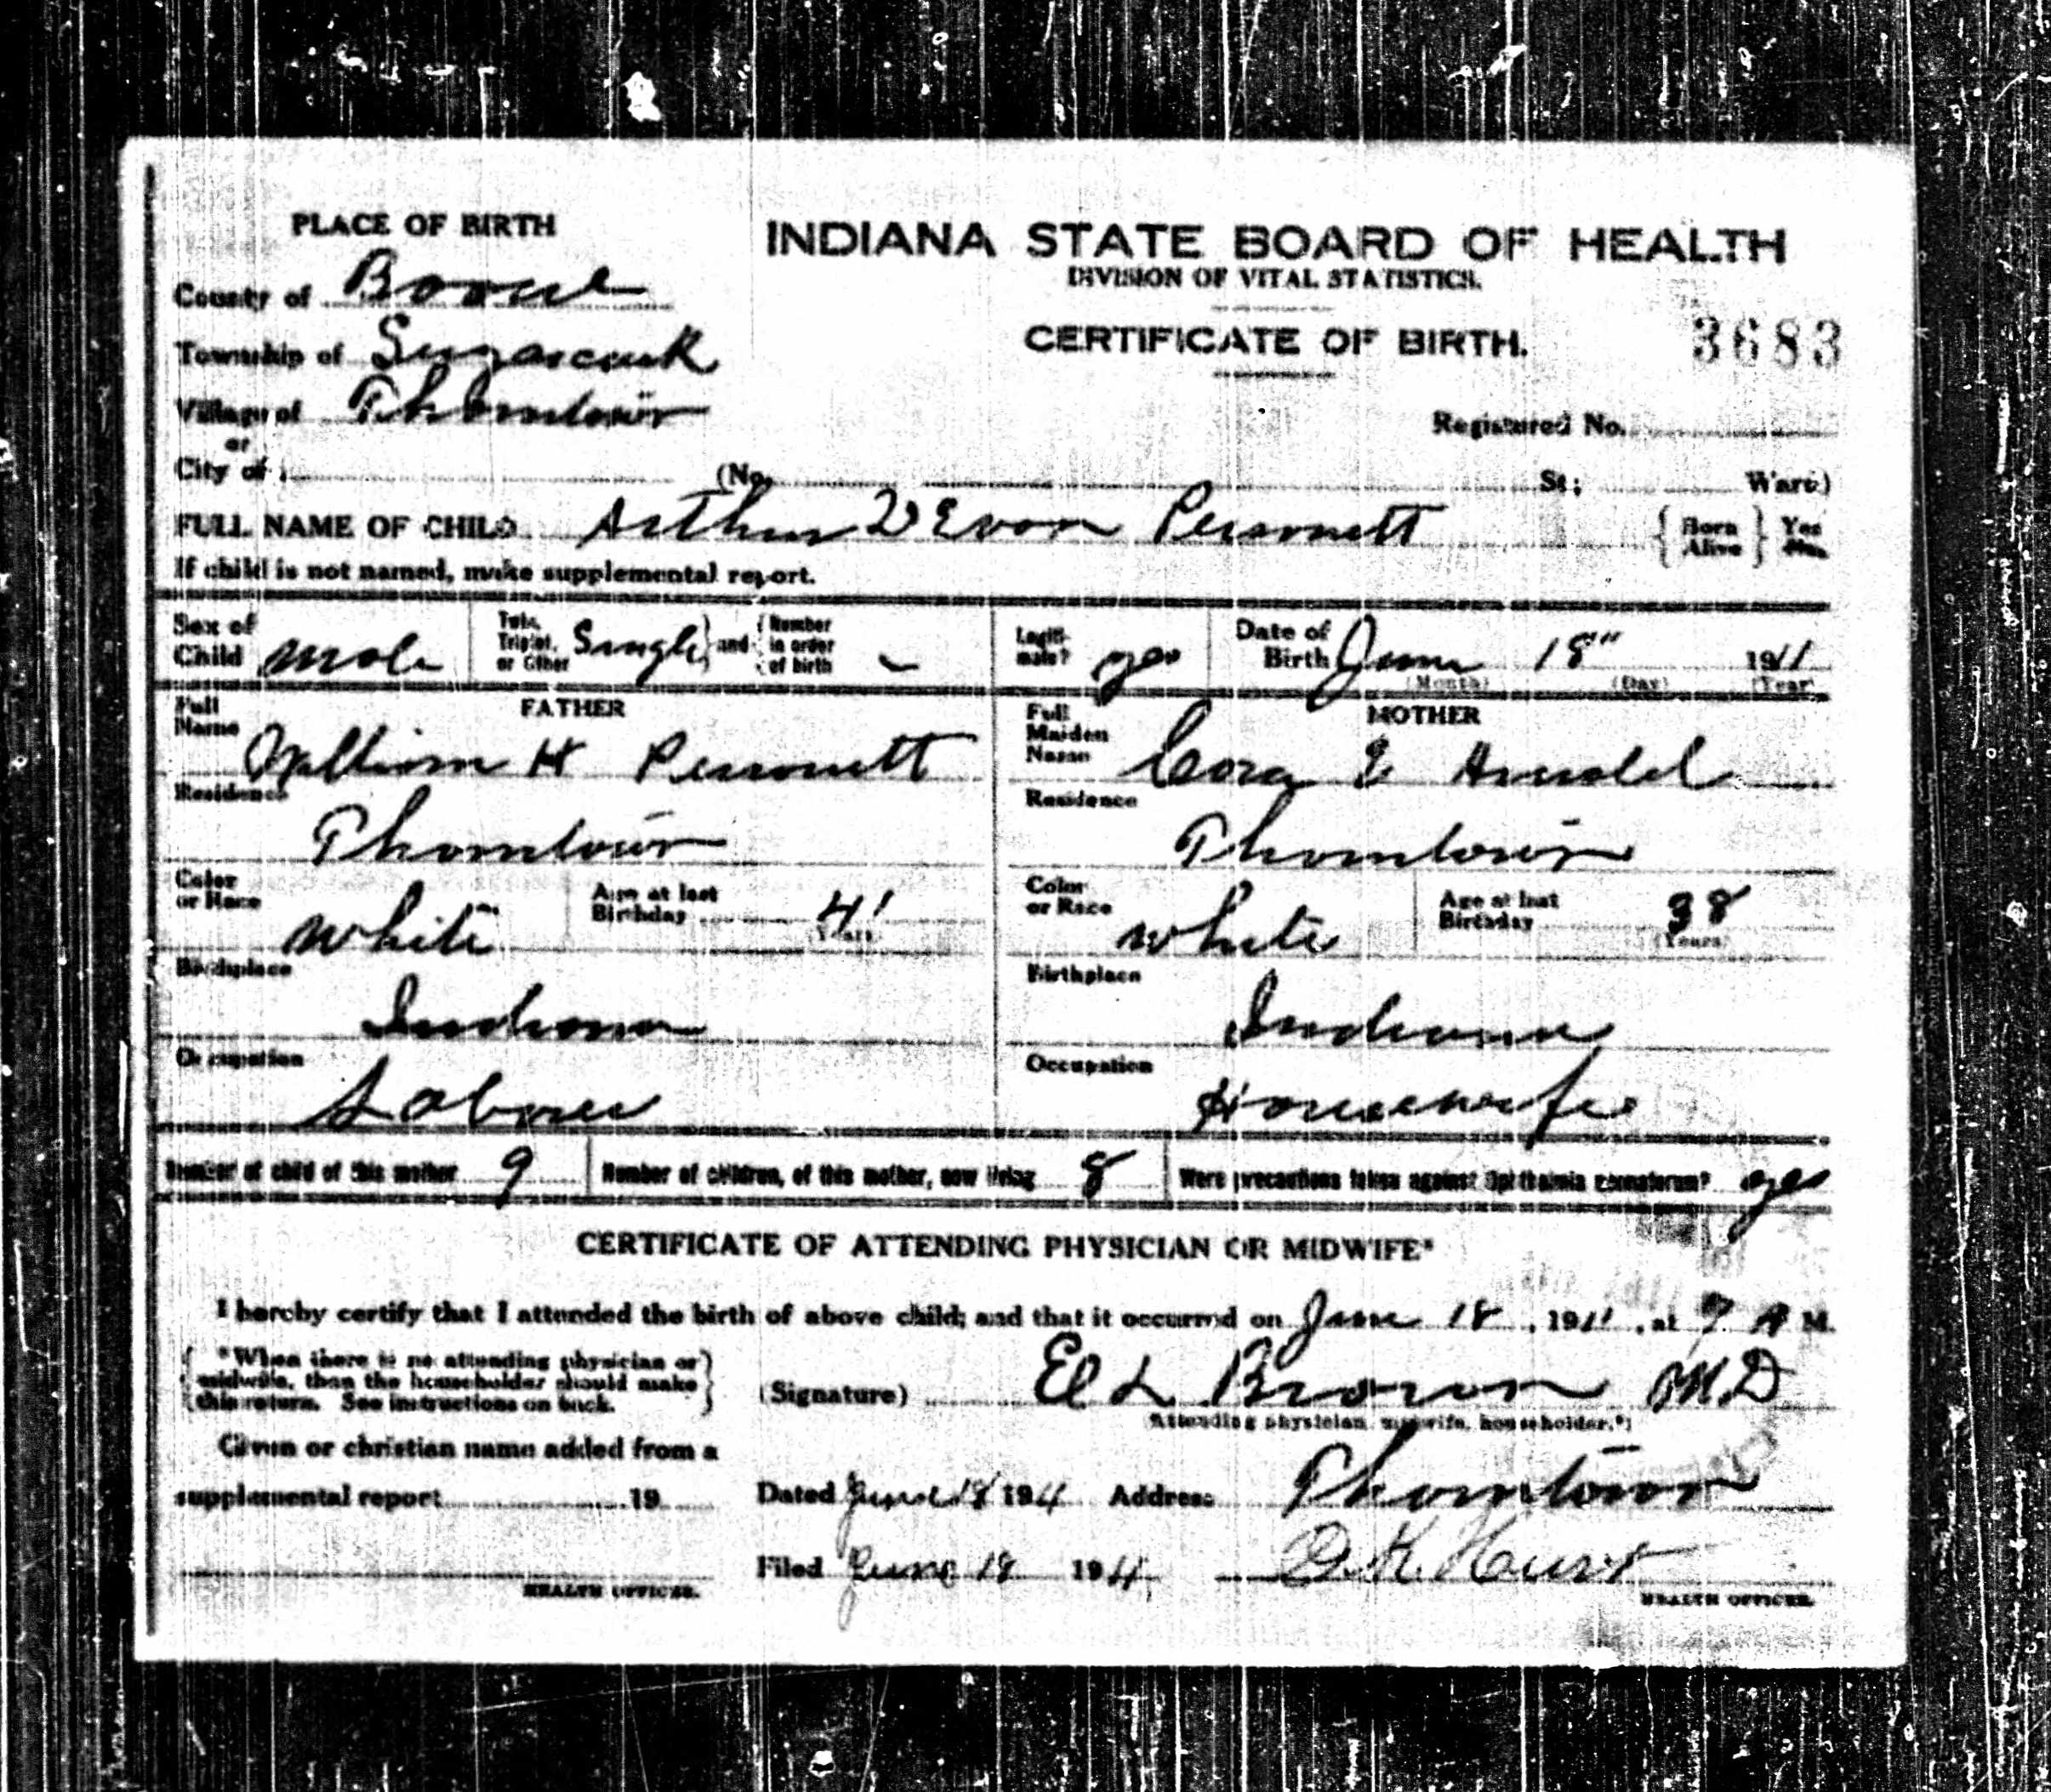 PLACE OF BIRTH
INDIANA STATE BOARD OF HEALTH
DIVISION OF VITAL STATISTICS.
County of Boone
CERTIFICATE OF BIRTH. 3683
Township of Sugarcreek
Village of Thorntown
or
Registered No.
City of (No. St; Ward)
FULL NAME OF CHILD Arthur DEvon Personett { Born Alive } Yes No
If child is not named, make supplemental report.
Sex of Child male Twin, Triplet, or Other Single } and { Number in order of birth – Legitimate? yes Date of Birth June 18" 1911
(Month) (Day) (Year)
FATHER MOTHER
Full Name William H Personett Full Maiden Name Cora E Arnold
Residence Thorntown Residence Thorntown
Color or Race White Age at last Birthday 41 (Years) Color or Race White Age at last Birthday 38 (Years)
Birthplace Indiana Birthplace Indiana
Occupation Laborer Occupation Housewife
Number of child of this mother 9 Number of children, of this mother, now living 8 Were precautions taken against Ophthalmia neonatorum? yes
CERTIFICATE OF ATTENDING PHYSICIAN OR MIDWIFE*
I hereby certify that I attended the birth of above child; and that it occurred on June 18, 1911, at A M.
{ *When there is no attending physician or midwife, then the householder should make this return. See instructions on back. }
(Signature) L Brown M.D
Attending physician, midwife, householder.*)
Given or christian name added from a
supplemental report 19 Dated June 18 1911 Address Thorntown
Filed June 18 1911, Hurst
HEALTH OFFICER. HEALTH OFFICER.